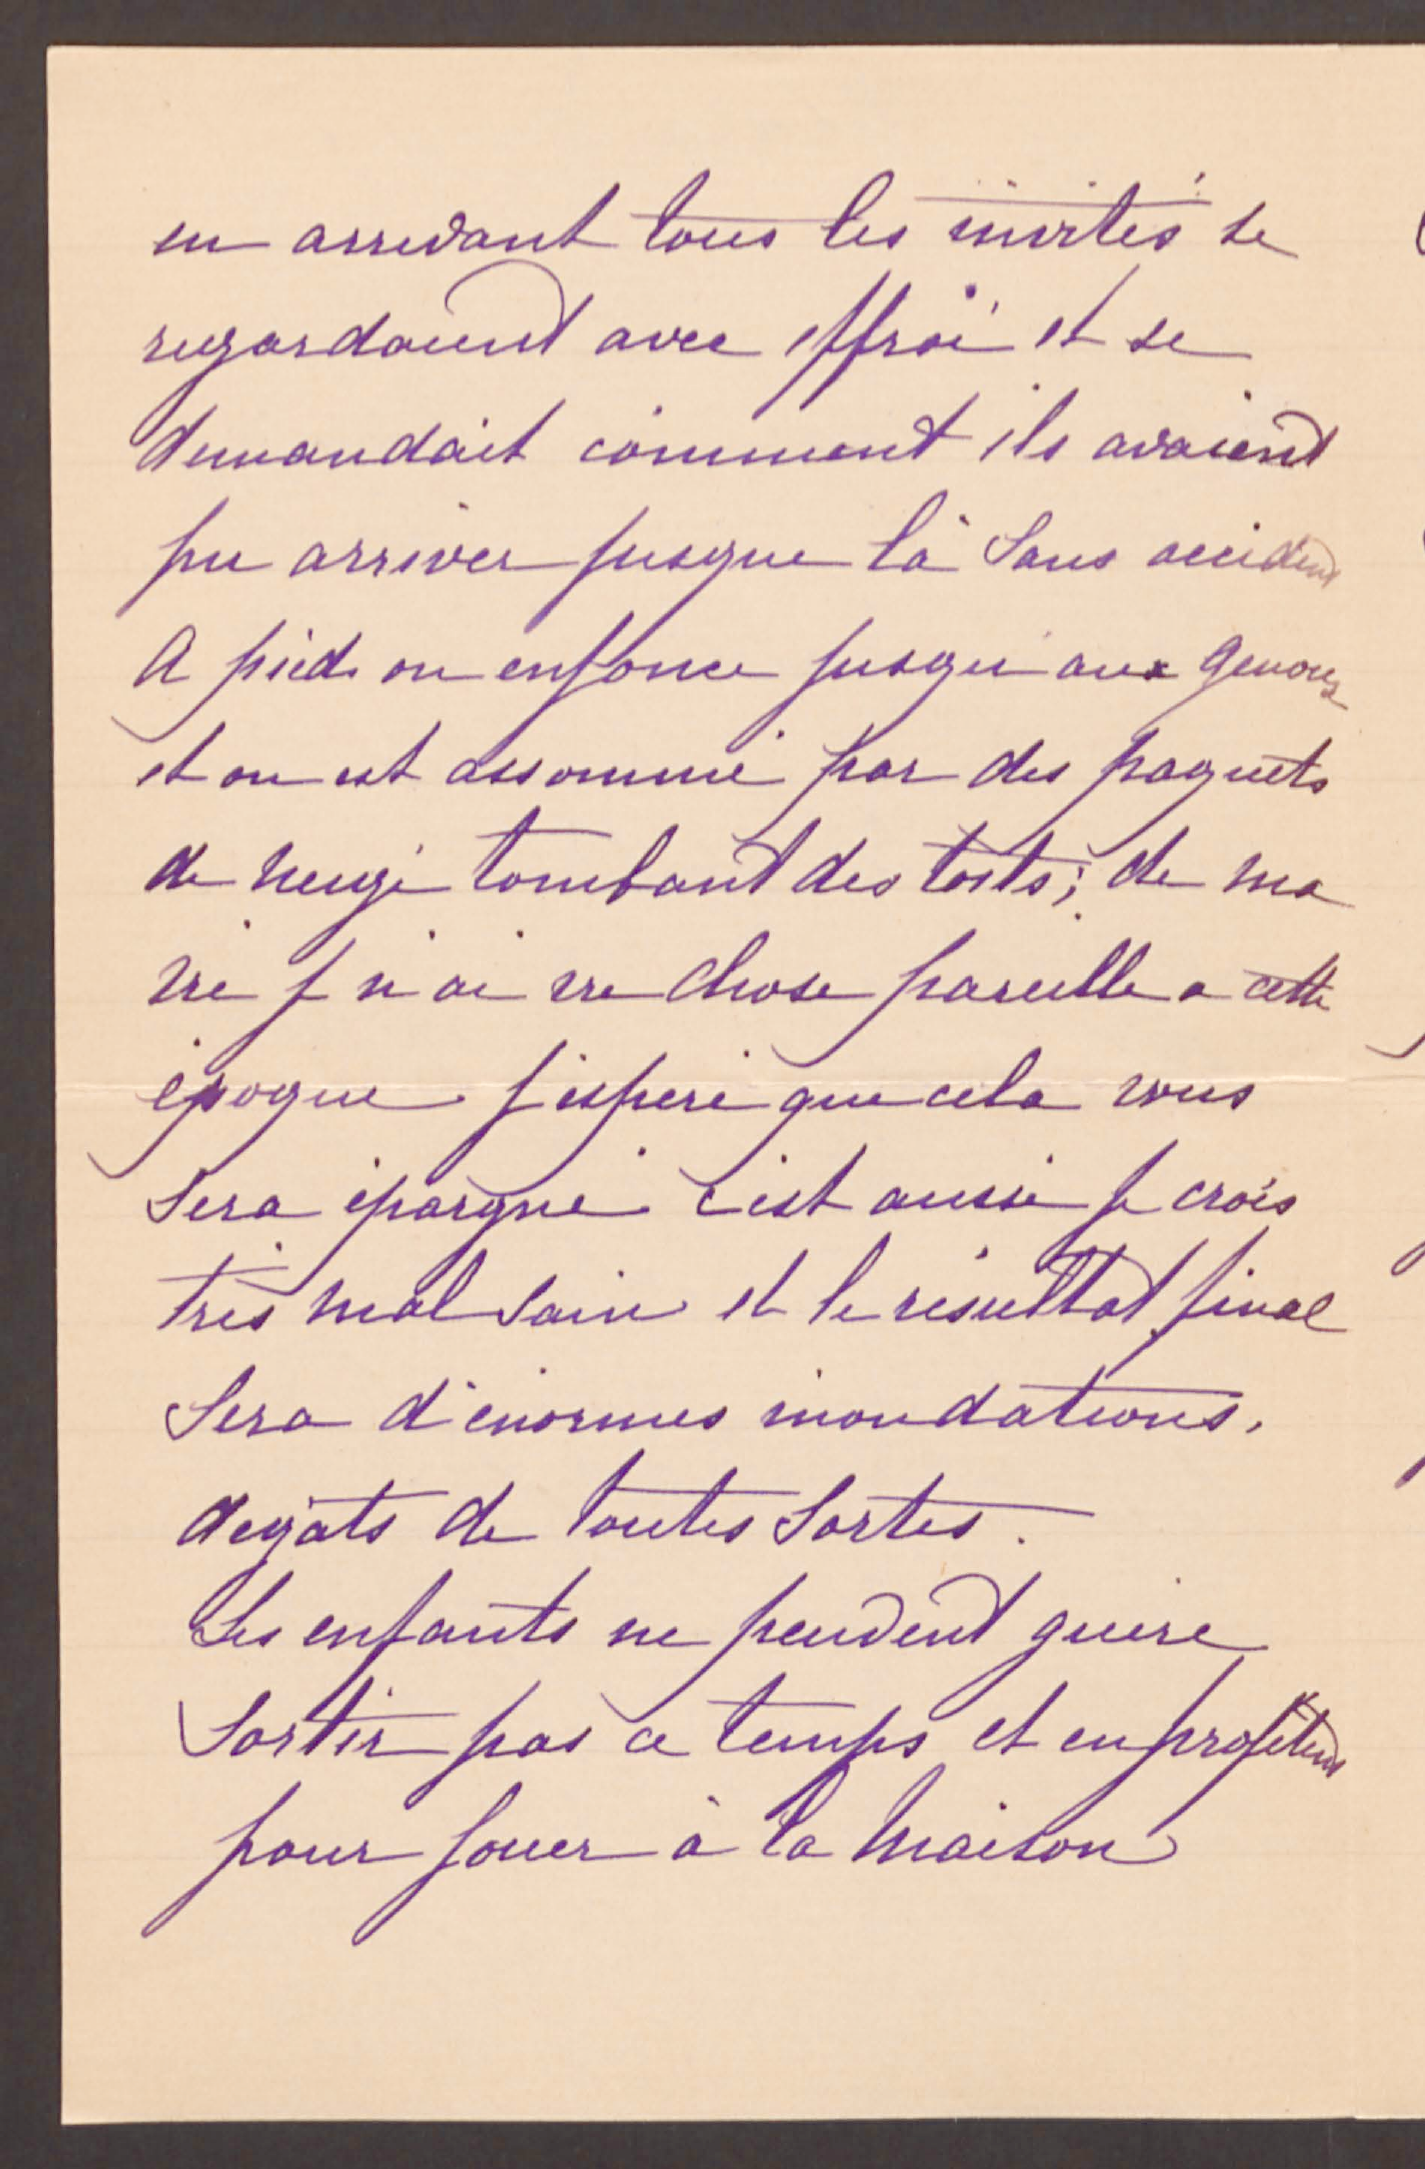 en arrivant tous les invités se
regardaient avec effroi et se
demandait comment ils avaient
pu arriver jusque là sans accident
A pied on enfonce jusqu'aux genoux
et on est assommé par des paquets
de neige tombant des toits; de ma
vie je n'ai vu chose pareille a cette
époque. j'espère que cela vous
sera épargné. c'est aussi je crois
très mal sain et le résultat final
sera d'énormes inondations,
degats de toutes sortes.
Les enfants ne peuvent guère
sortir par ce temps et en profitent
pour jouer à la maison